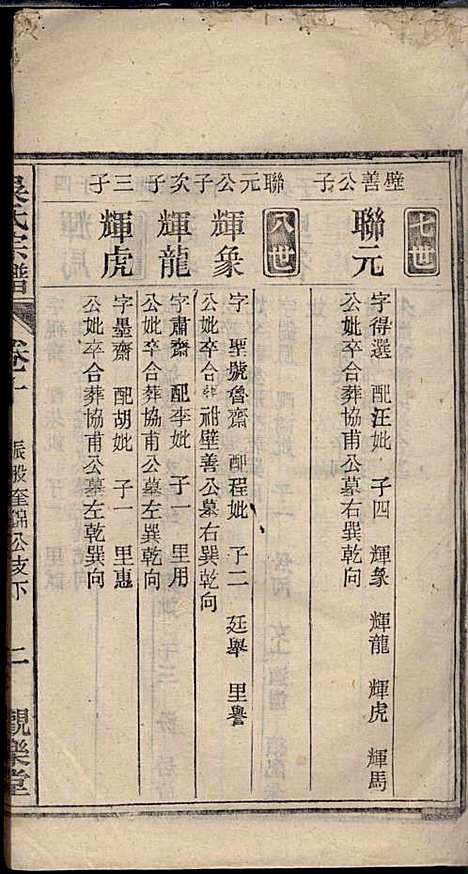 七世
壁善公子
聯元
字得選 配汪妣 子四 輝象 輝龍 輝虎 輝馬
公妣卒合葬協甫公墓右巽乾向
八世
聯元公子
輝象
字聖號魯齋 配程妣 子二 廷舉 里譽
公妣卒合葬祔壁善公墓右巽乾向
次子
輝龍
字肅齋 配李妣 子一 里用
公妣卒合葬協甫公墓左乾巽向
三子
輝虎
字墨齋 配胡妣 子一 里惠
公妣卒合葬協甫公墓左乾巽向
吳氏宗譜
卷十
振股奎錦公支下
二
觀樂堂